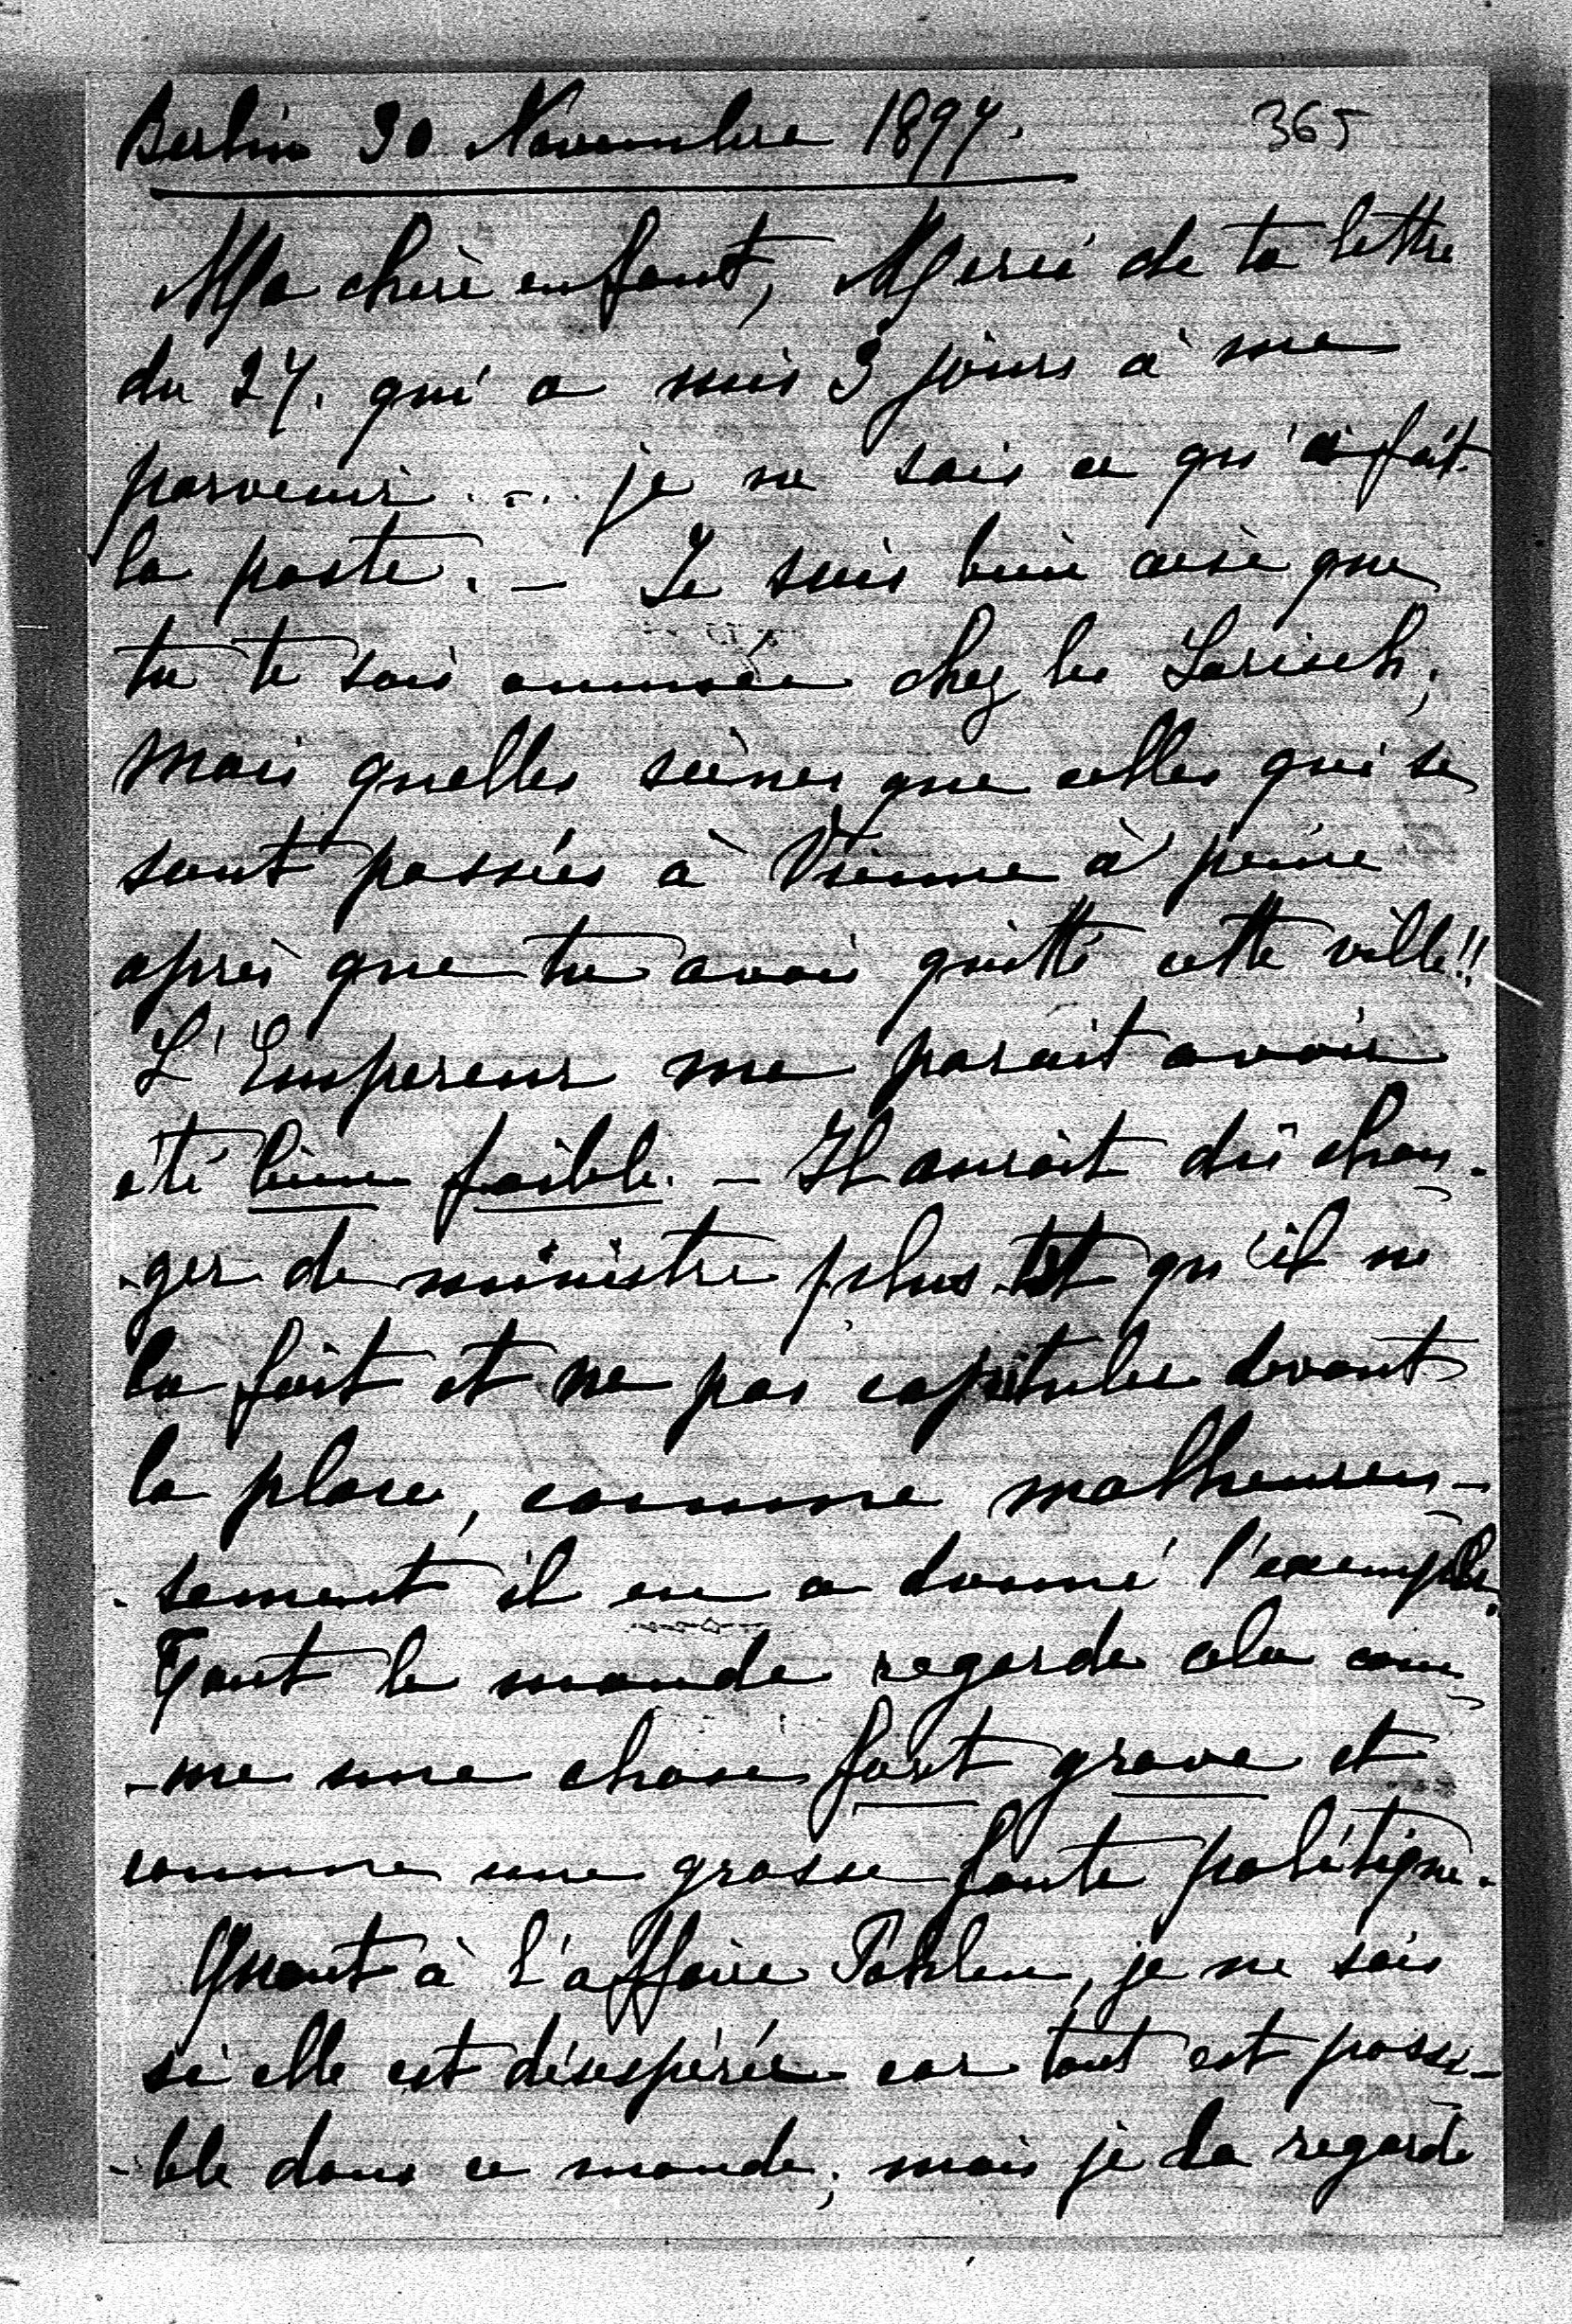 Berlin 30 Novembre 1897. 365
Ma chère enfant, Merci de ta lettre
du 27. qui a mis 3 jours à me
parvenir. ... je ne sais ce qu'a fait
la poste. — Je suis bien aise que
tu te sois amusée chez les Larisch,
mais quelles scènes que celles qui se
sont passées à Vienne à peine
après que tu avais quitté cette ville!!
L'Empereur me parait avoir
été bien faible. — Il aurait dû chan-
-ger de ministre plus tôt qu'il ne
l'a fait et ne pas capituler devant
la place, comme malheureu-
-sement il en a donné l'exemple.
Tout le monde regarde cela com-
-me une chose fort grave et
comme une grosse faute politique.
Quant à l'affaire Pahlen, je ne sais
si elle est désespérée car tout est possi-
-ble dans ce monde; mais je la regarde